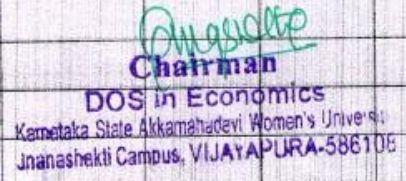 Chairman
DOS in Economics
Karnataka State Akkamahadevi Women's
Jnanashakti Campus, VIJAYAPURA-586108